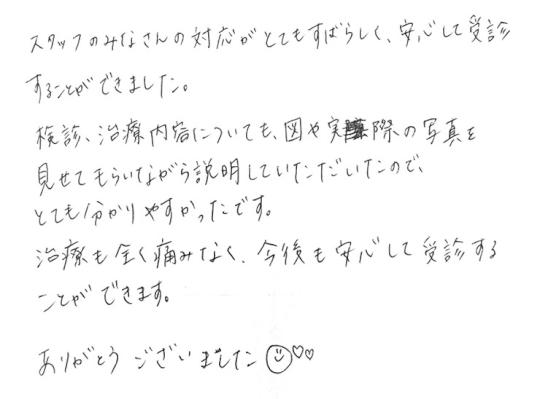 スタッフのみなさんの対応がとてもすばらしく、安心して受診
することができました。
検診、治療内容についても、図や実際の写真を
見せてもらいながら説明していただいたので、
とても分かりやすかったです。
治療も全く痛みなく、今後も安心して受診する
ことができます。
ありがとうございました